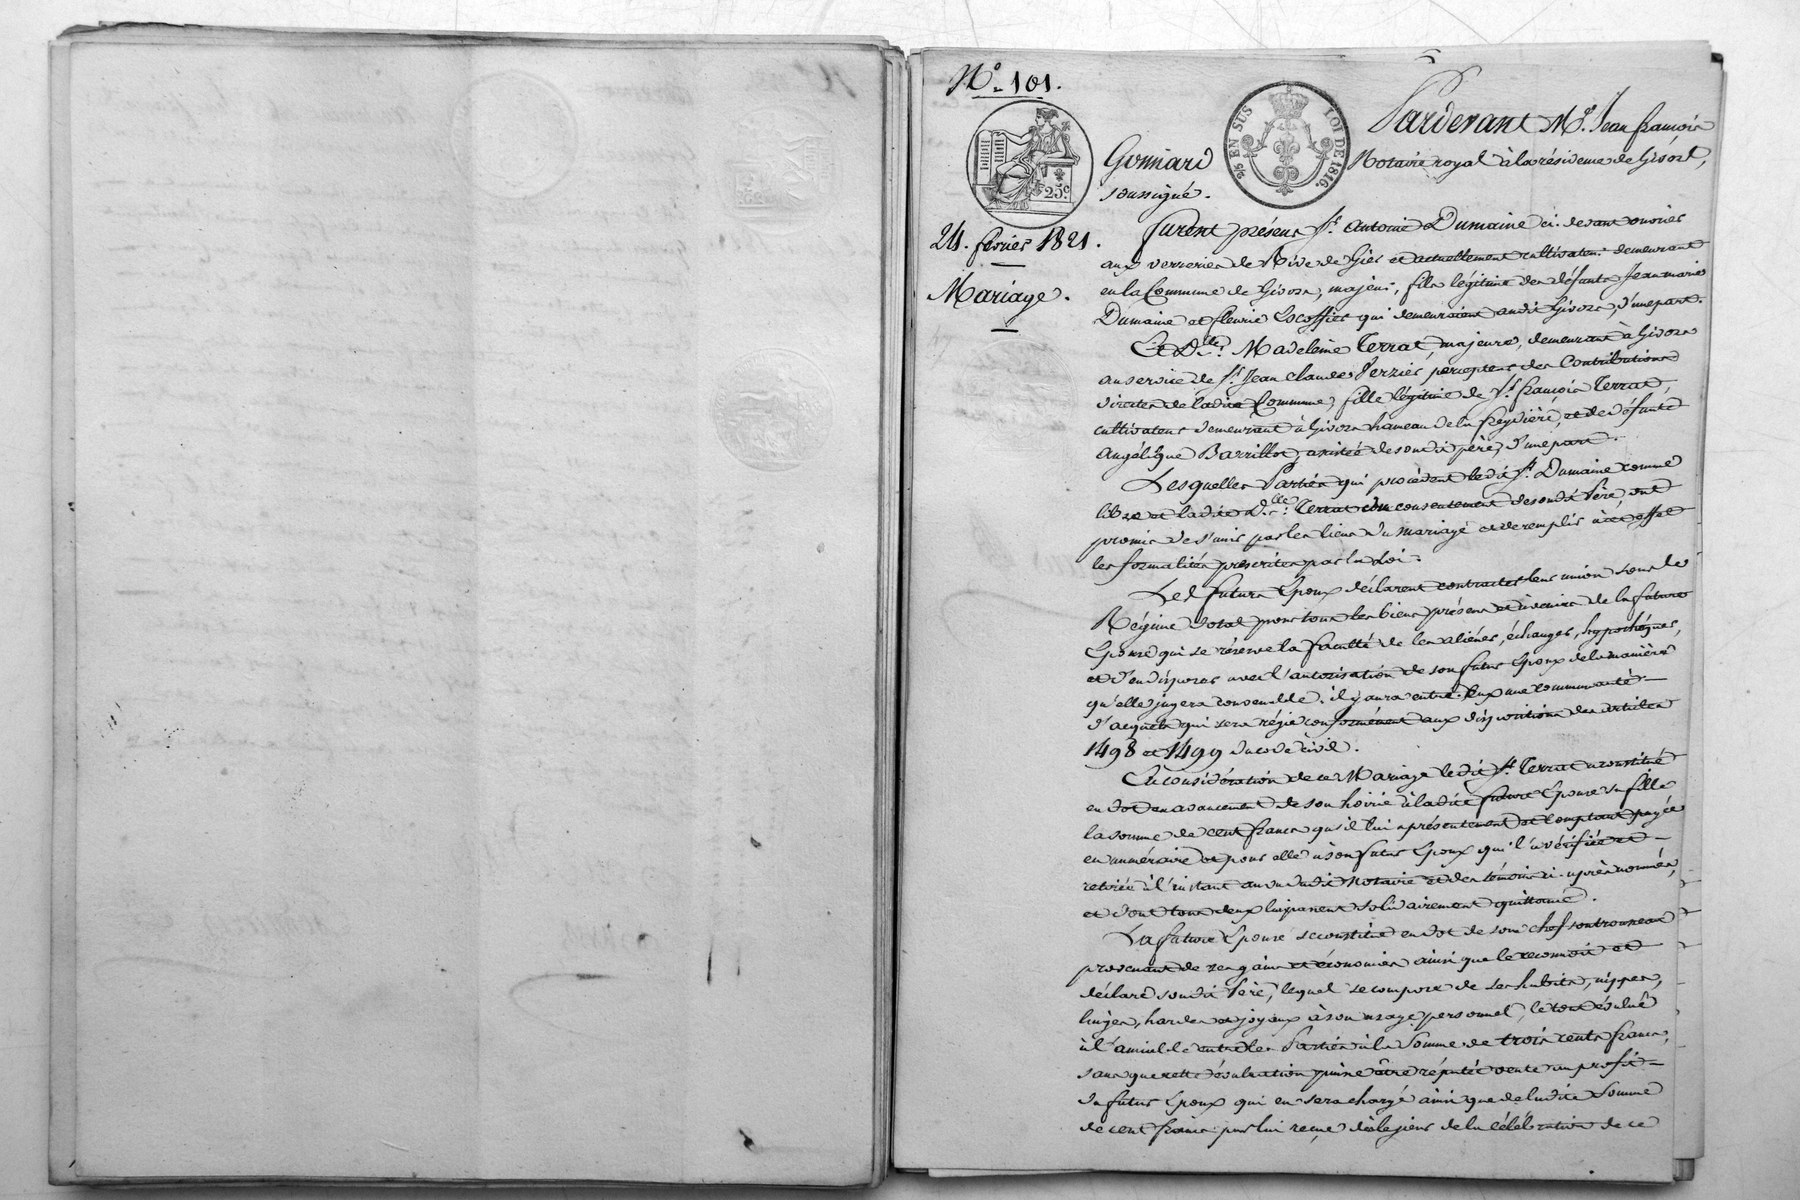 N.º 101.
2/5 EN SUS LOI DE 1816.
25.c
24. février 1821.
Mariage.
Pardevant M.e Jean françois
Gonnard Notaire royal à la résidence de Givors,
soussigné.
furent présens S.r Antoine Dumaine ci-devant ouvrier
aux verreries de Rive de Gier et actuellement cultivateur demeurant
en la Commune de Givors, majeur, fils légitime des défunts Jean marie
Dumaine et fleurie Escoffier qui demeuroient audit Givors, d'une part.
Et D.lle Madeleine Terrat, majeure, demeurant à Givors
au service de S.r Jean claude Verzier percepteur des Contributions
directes de ladite Commune, fille légitime de S.r françois Terrat,
cultivateur demeurant à Givors hameau de la freydière, et de défunte
Angélique Barrillot, assistée de son dit père, d'une part.
Lesquelles Parties qui procèdent ledit S.r Dumaine comme
libre et ladite D.lle Terrat du consentement de son dit Père, ont
promis de s'unir par les liens du mariage et de remplir à cet effet
les formalités prescrites par la Loi.
Les d. futurs Epoux déclarent contracter leur union sous le
Régime dotal pour tous les biens présens et à venir de la future
Epouse qui se réserve la faculté de les aliéner, échanger, hypothéquer,
et d'en disposer avec l'autorisation de son futur Epoux de la manière
qu'elle jugera convenable. il y aura entre Eux une communauté
d'acquets qui sera régie conformément aux dispositions des articles
1498 et 1499 du code civil.
En considération de ce Mariage ledit S.r Terrat a constitué
en dot en avancement de son hoirie à ladite future Epouse sa fille
la somme de cent francs qu'il lui a présentement et comptant payée
en numéraire et pour elle à son futur Epoux qui l'a vérifiée et
retirée à l'instant au vu dudit Notaire et des témoins ci-après nommés,
et dont tous deux lui passent solidairement quittance.
La future Epouse se constitue en dot de son chef son trousseau
provenant de ses gains et économies ainsi que le reconnoit et
déclare son dit Père, lequel se compose de ses habits, nippes,
linges, hardes et joyaux à son usage personnel, le tout évalué
à l'amiable entre les Parties à la Somme de trois cents francs,
sans que cette évaluation puisse être réputée vente au profit
du futur Epoux qui en sera chargé ainsi que de ladite Somme
de cent francs par lui reçue dès le jour de la célébration de ce